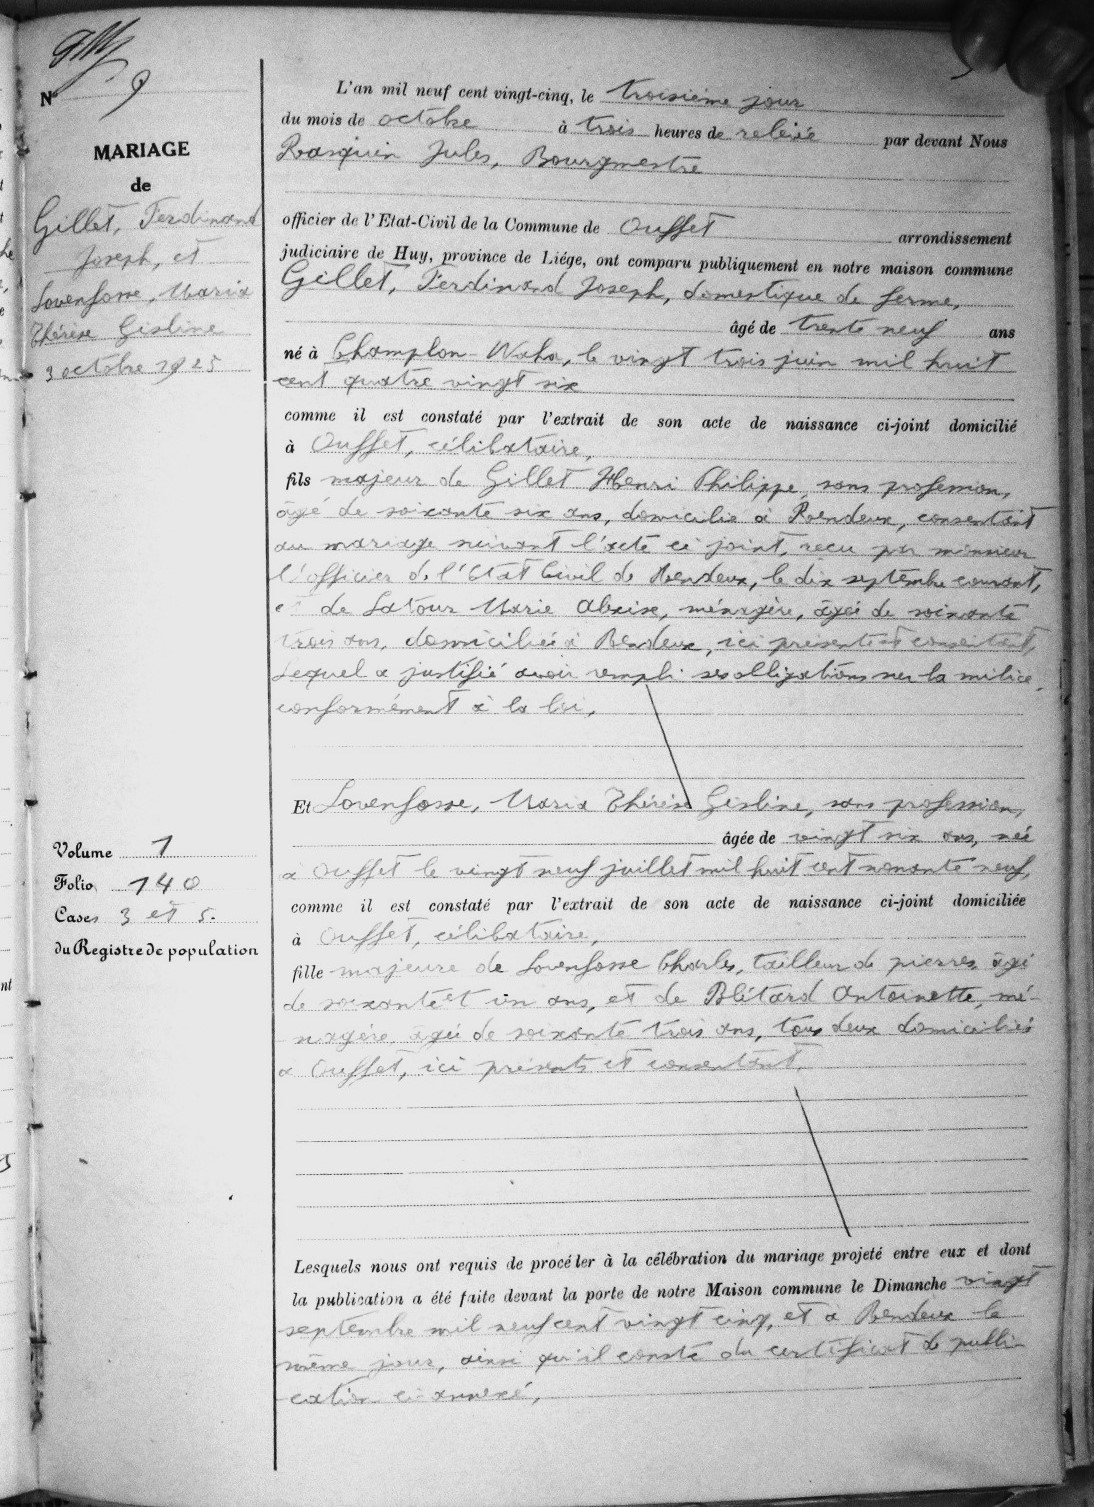 N° 9
MARIAGE
de
Gillet, Ferdinand
Joseph, et
Lovenfosse, Maria
Thérèse Gisline
3 octobre 1925
Volume 1
Folio 140
Cases 3 et 5.
du Registre de population
L'an mil neuf cent vingt-cinq, le troisième jour
du mois de octobre à trois heures de relevée par devant Nous
Rasquin Jules, Bourgmestre
officier de l'Etat-Civil de la Commune de Ouffet arrondissement
judiciaire de Huy, province de Liége, ont comparu publiquement en notre maison commune
Gillet, Ferdinand Joseph, domestique de ferme,
âgé de trente neuf ans
né à Champlon-Waha, le vingt trois juin mil huit
cent quatre vingt six
comme il est constaté par l'extrait de son acte de naissance ci-joint domicilié
à Ouffet, célibataire,
fils majeur de Gillet Henri Philippe, sans profession,
âgé de soixante six ans, domicilié à Rendeux, consentant
au mariage suivant l'acte ci joint, reçu par monsieur
l'officier de l'Etat Civil de Rendeux, le dix septembre courant,
et de Latour Marie Alexise, ménagère, âgée de soixante
trois ans, domiciliée à Rendeux, ici présente et consentant,
Lequel a justifié avoir rempli ses obligations sur la milice
conformément à la loi,
Et Lovenfosse, Maria Thérèse Gisline, sans profession,
âgée de vingt six ans, née
à Ouffet le vingt neuf juillet mil huit cent nonante neuf,
comme il est constaté par l'extrait de son acte de naissance ci-joint domiciliée
à Ouffet, célibataire,
fille majeure de Lovenfosse Charles, tailleur de pierres, âgé
de soixante et un ans, et de Blétard Antoinette, mé-
nagère, âgée de soixante trois ans, tous deux domiciliés
à Ouffet, ici présents et consentant.
Lesquels nous ont requis de procéder à la célébration du mariage projeté entre eux et dont
la publication a été faite devant la porte de notre Maison commune le Dimanche vingt
septembre mil neuf cent vingt cinq, et à Rendeux le
même jour, ainsi qu'il conste du certificat de publi-
cation ci annexé,